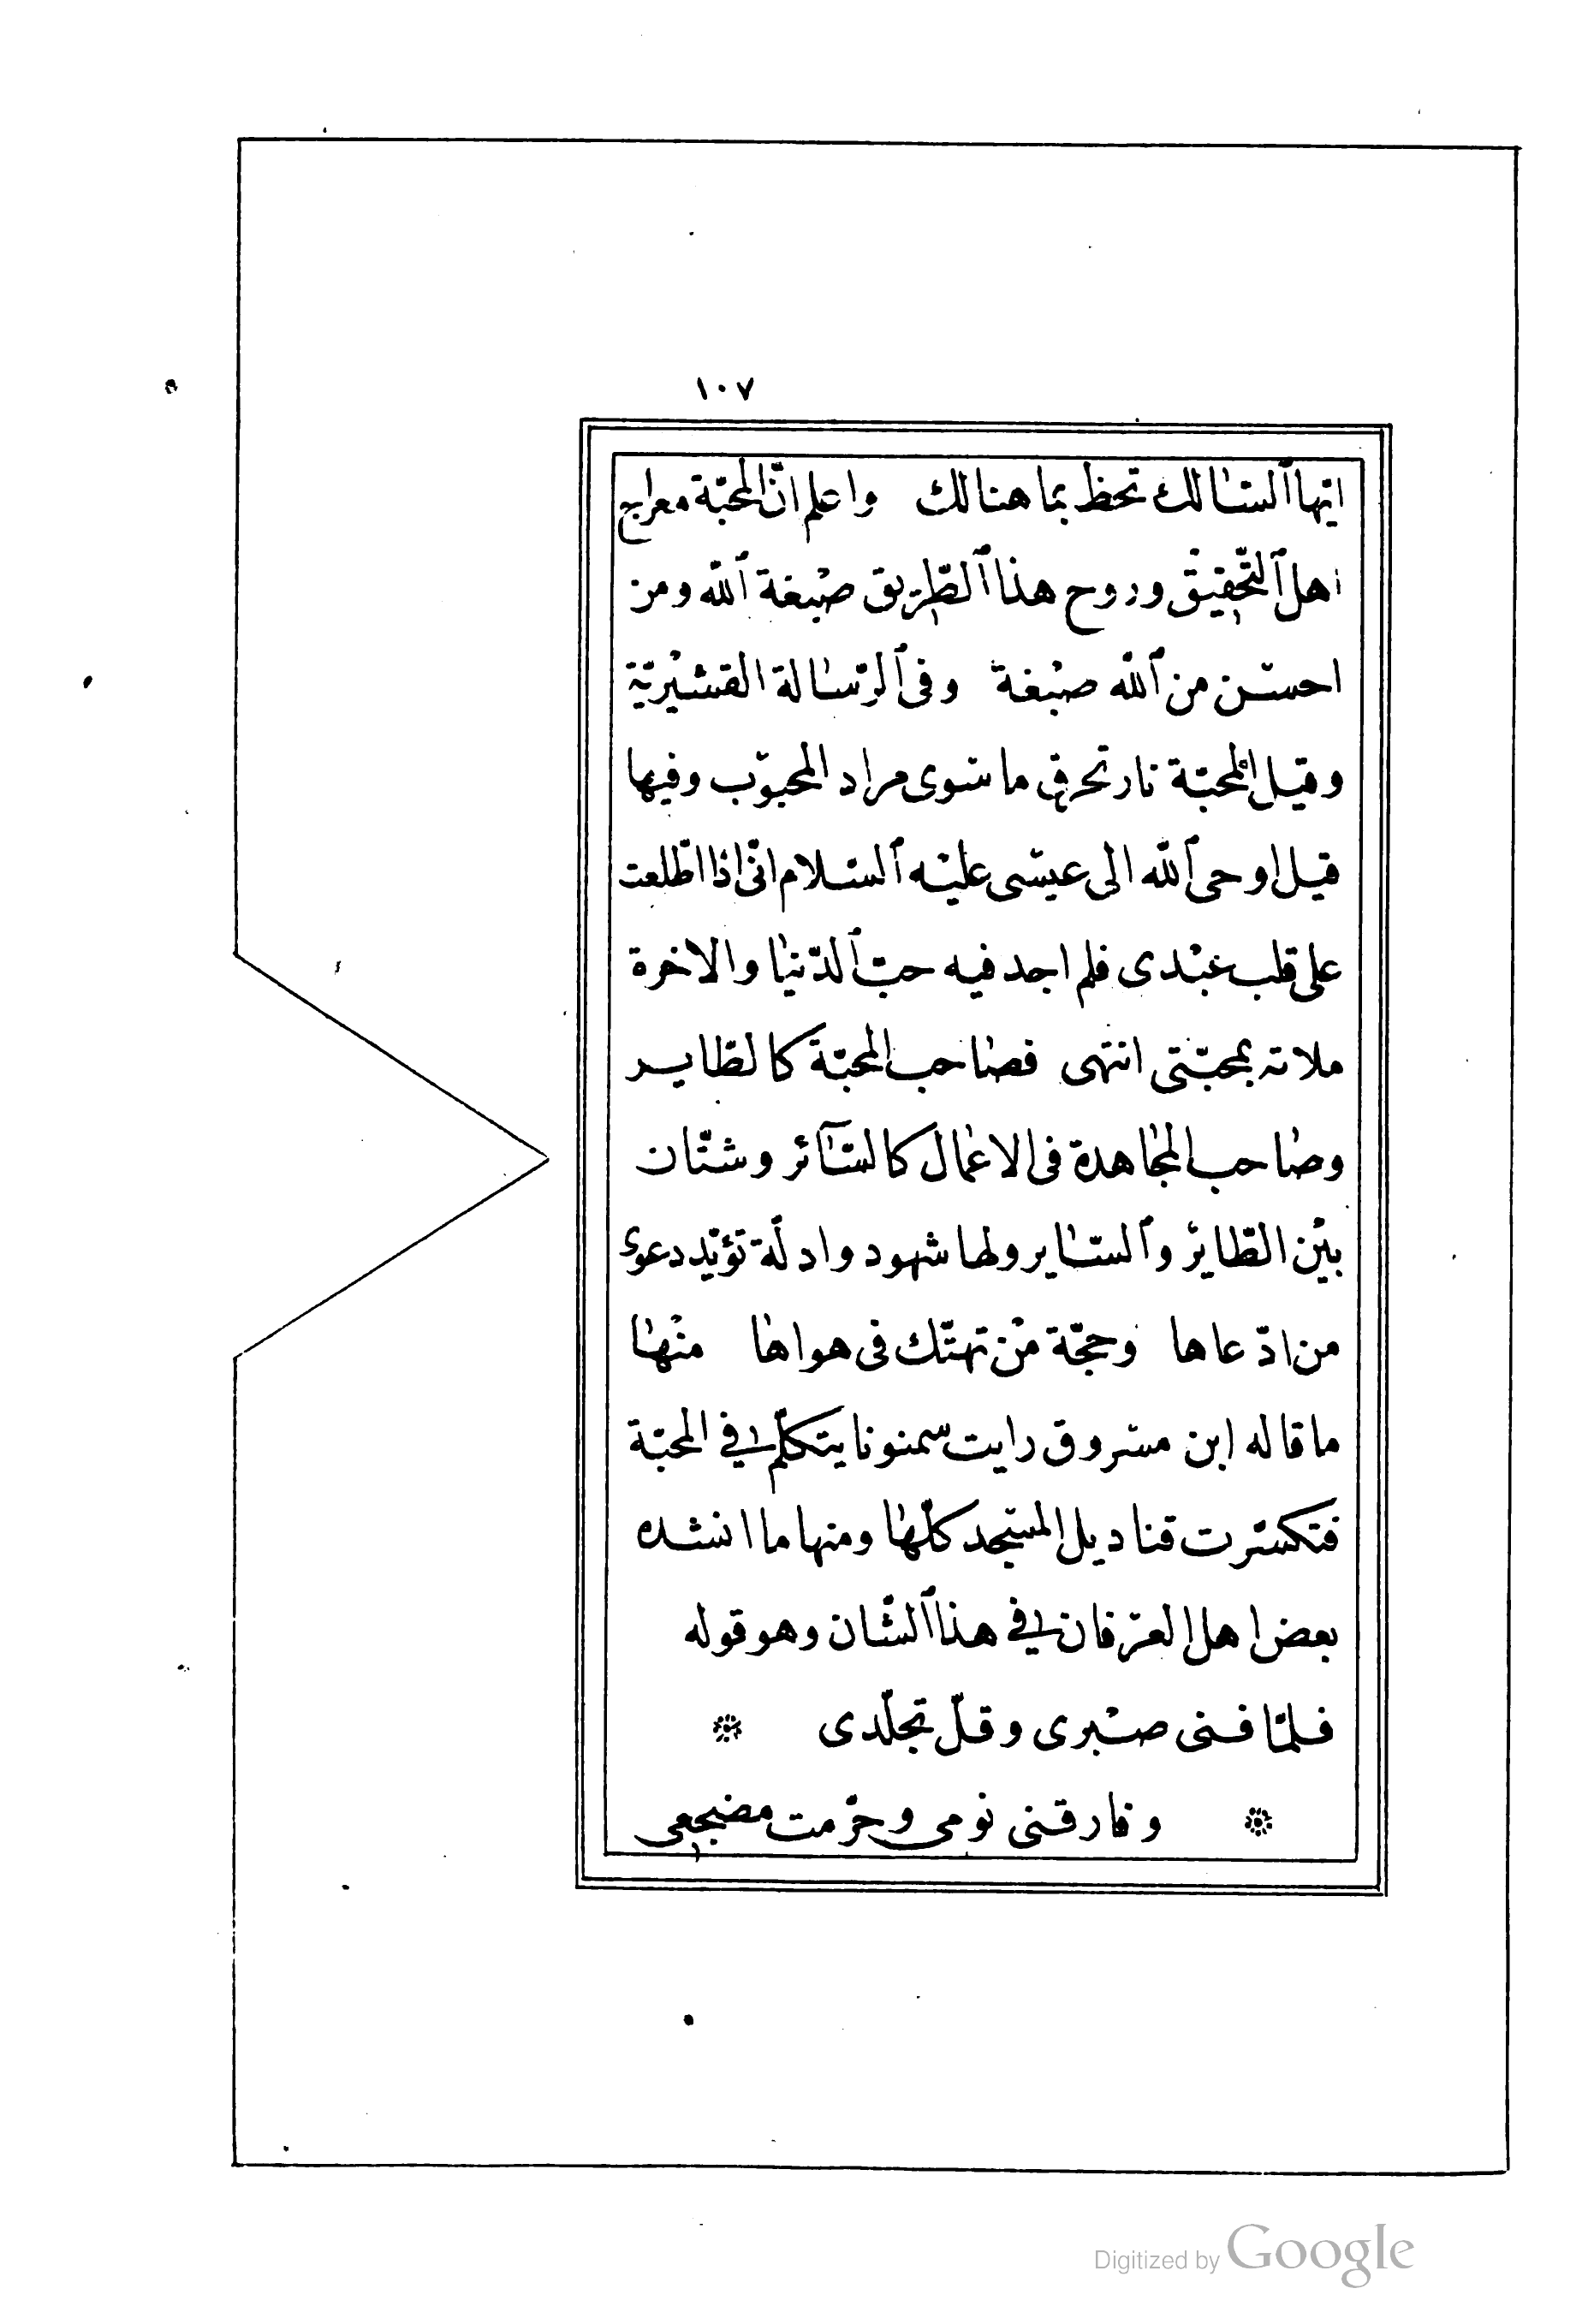 ١٠٧
ايّها ٱلسّالك تحظ بما هنالك واعلم انّ المحبّة معراج
اهل ٱلتّحقيق وروح هذا ٱلطّريق صبْغة ٱللّه ومن
احسن من ٱللّه صبْغة وفى ٱلرّسالة القشيْريّة
وقيل المحبّة نار تحرق ما سوى مراد المحبوب وفيها
قيل اوحى ٱللّه الى عيسى عليْه ٱلسّلام انّى اذا اطّلعت
على قلب عبْدى فلم اجد فيه حبّ ٱلدّنيا والاخرة
ملاته بمحبّتى انتهى فصاحب المحبّة كالطّاير
وصاحب المجاهدة فى الاعمال كالسّآئر وشتّان
بيْن الطّاير وٱلسّاير ولها شهود وادلّة تؤيّد دعوى
من ادّعاها وحجّة منْ تهتّك فى هواها منْها
ما قاله ابن مسروق رايت سمنونا يتكلّم فى المحبّة
فتكسّرت قناديل المسْجد كلّها ومنها ما انشده
بعض اهل العرْفان فى هذا ٱلشّان وهو قوله
فلمّا فنى صبْرى وقلّ تجلّدى
وفارقنى نومى وحرّمت مضجعى
Digitized by Google